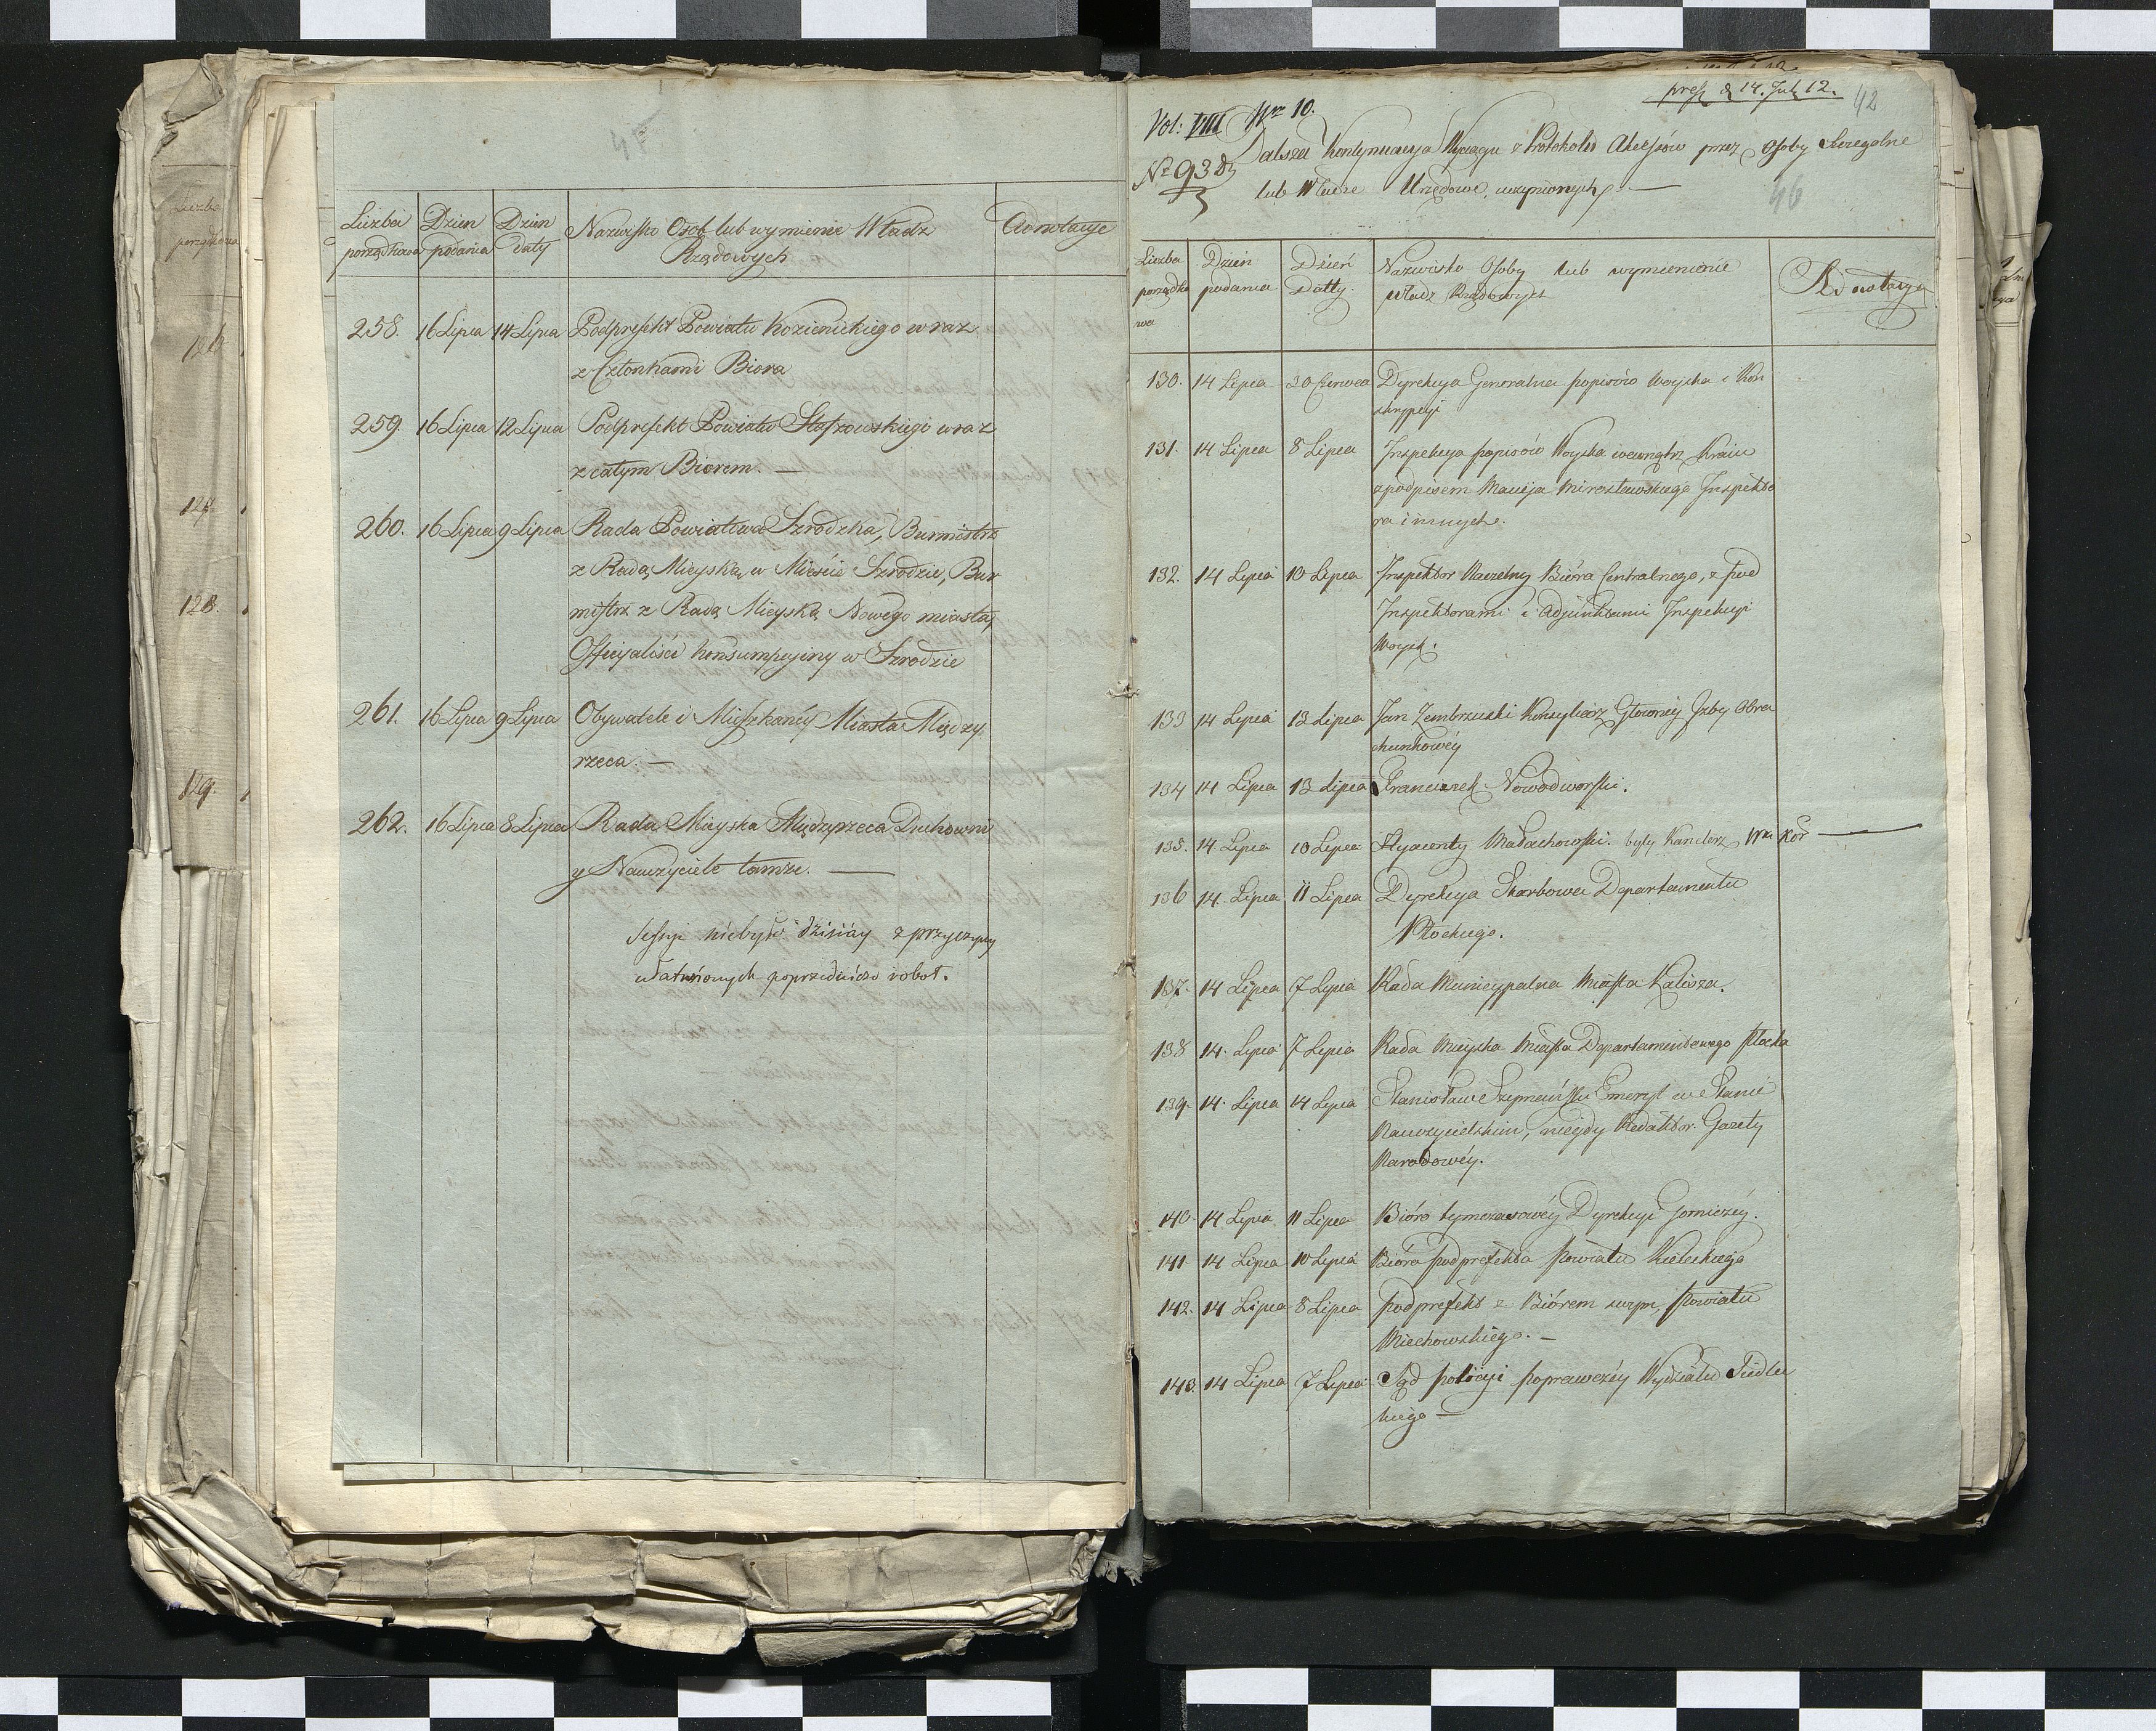 Liczba Dzień Dzień Nazwisko Osob lub wymienie Władz Adnotacye
porządkowa podania daty Rządowych
258. 16 Lipca 14 Lipca Podprefekt Powiatu Kozienickiego wraz
z Członkami Biora
259. 16 Lipca 12 Lipca Podprefekt Powiatu Staszowskiego wraz
z całym Biorem. —
260. 16 Lipca 9 Lipca Rada Powiatowa Szrodzka, Burmistrz
z Radą Mieyską w Mieście Szrodzie, Bur
mistrz z Radą Mieyską Nowego miasta,
Officyaliści konsumpcyiny w Szrodzie
261. 16 Lipca 9 Lipca Obywatele i Mieszkańcy Miasta Między
rzeca. —
262. 16 Lipca 8 Lipca Rada Mieyska Międzyrzeca Duchowni
y Nauczyciele tamże. —
Sessyi niebyło dzisiáy z przyczyny
ułatwionych poprzedniczo robot.
pres. d 14. Jul. 12.
42
Vol: VIII Nr 10.
Nr 938
Dalsza Kontynuacya Wyciągu z Protokołu Akcessów przez Osoby Szczegolne
lub Władze Urzędowe, uczynionych. —
46
Liczba Dzień Dzień Nazwisko Osoby lub wymienienie Adnotacye
porządko podania Datty. Władz Rządowych
wa
130. 14 Lipca 30 Czerwca Dyrekcya Generalna popisów Woyska i Kon
skrypcyi
131. 14 Lipca 8 Lipca Inspekcya popisów Woyska wewnątrz Kraiu
z podpisem Macieja Mirosławskiego Inspekto
ra i innych.
132. 14 Lipca 10 Lipca Inspektor Naczelny Bióra Centralnego, z Pod
Inspektorami i Adjunktami Inspekcyi
Woysk.
133 14 Lipca 13 Lipca Jan Zembrzuski Konsyliarz Głowney Izby Obra
chunkowéy
134 14 Lipca 13 Lipca Franciszek Nowodworski.
135. 14 Lipca 10 Lipca Hyacenty Małachowski. były Kanclerz Wn Kor —
136 14. Lipca 11 Lipca Dyrekcya Skarbowa Departamentu
Płockiego.
137. 14 Lipca 7 Lipca Rada Municypalna Miasta Kalisza.
138 14. Lipca 7 Lipca Rada Mieyska Miasta Departamentowego Płocka
139. 14. Lipca 14 Lipca Stanisław Szymański Emeryt w Stanie
Nauczycielskim, niegdy Redaktor Gazety
Narodowéy.
140. 14 Lipca 11 Lipca Bióro tymczasowéy Dyrekcyi Gorniczéy.
141 14 Lipca 10 Lipca Bióro podprefekta Powiatu Kieleckiego
142. 14 Lipca 8 Lipca Podprefekt z Biórem swym, Powiatu
Miechowskiego. —
143. 14 Lipca 7 Lipca Sąd policyi poprawczéy Wydziału Siedlec
kiego —